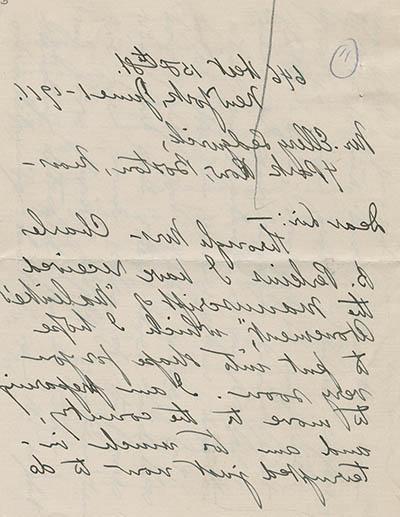 11
646 West 158th St.
New York, June 1-1911.
Mr. Ellery Sedgwick,
4 Park Row, Boston, Mass—
Dear Sir:—
Through Mr. Charles
B. Perkins I have received
the manuscript of
Atonement", which I hope
to put into shape for you
very soon. I am preparing
to move to the country,
and am too much in-
terrupted just now to do